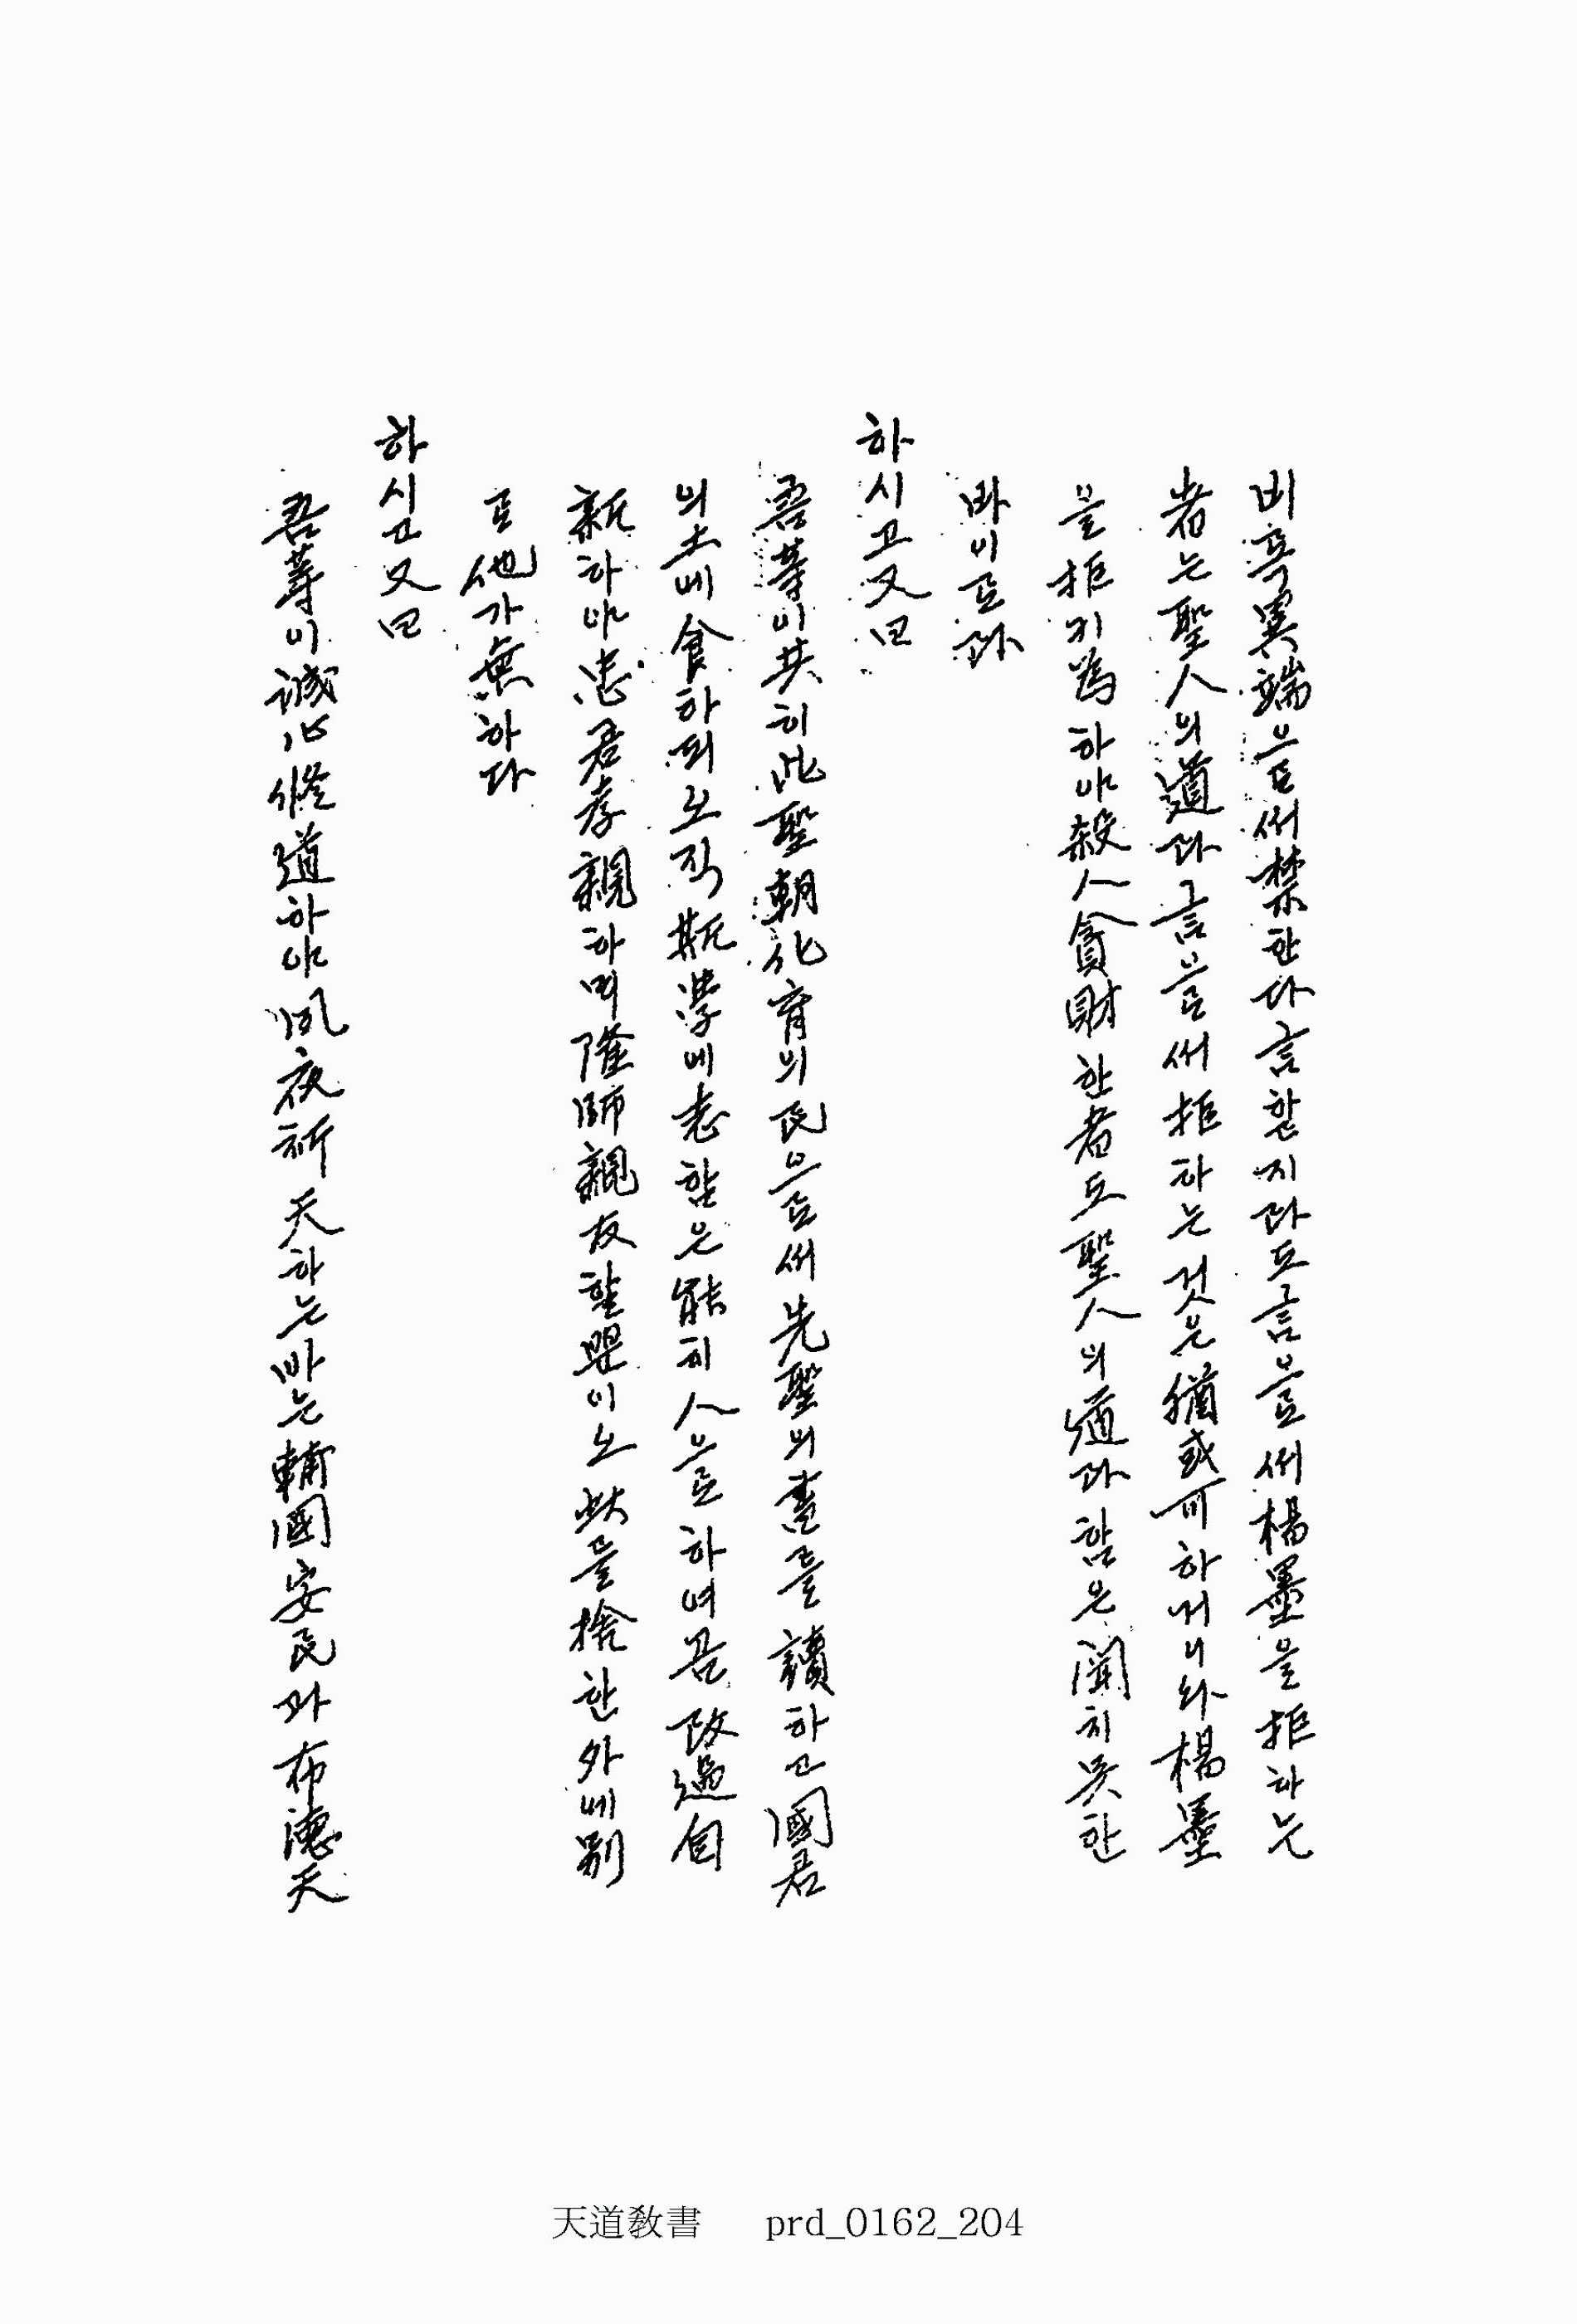 비록 異端으로써 禁한다 言할지라도 言으로써 楊墨을 拒하는
者는 聖人의 道라 言으로써 拒하는 것은 猶或可하거니와 楊墨
을 拒키 爲하야 殺人貪財한 者도 聖人의 道라 함은 聞치 못한
바이로라
하시고 又曰
吾等이 共히 此 聖朝化育의 民으로써 先聖의 書를 讀하고 國君
의 土에 食하되 오직 斯學에 志함은 能히 人으로 하여곰 改過自
新하야 忠君孝親하며 隆師親友할 이오 此를 捨한 外에 別
로 他가 無하다
하시고 又曰
吾等이 誠心修道하야 夙夜祈天하는 바는 輔國安民과 布德天
天道敎書 prd_0162_204